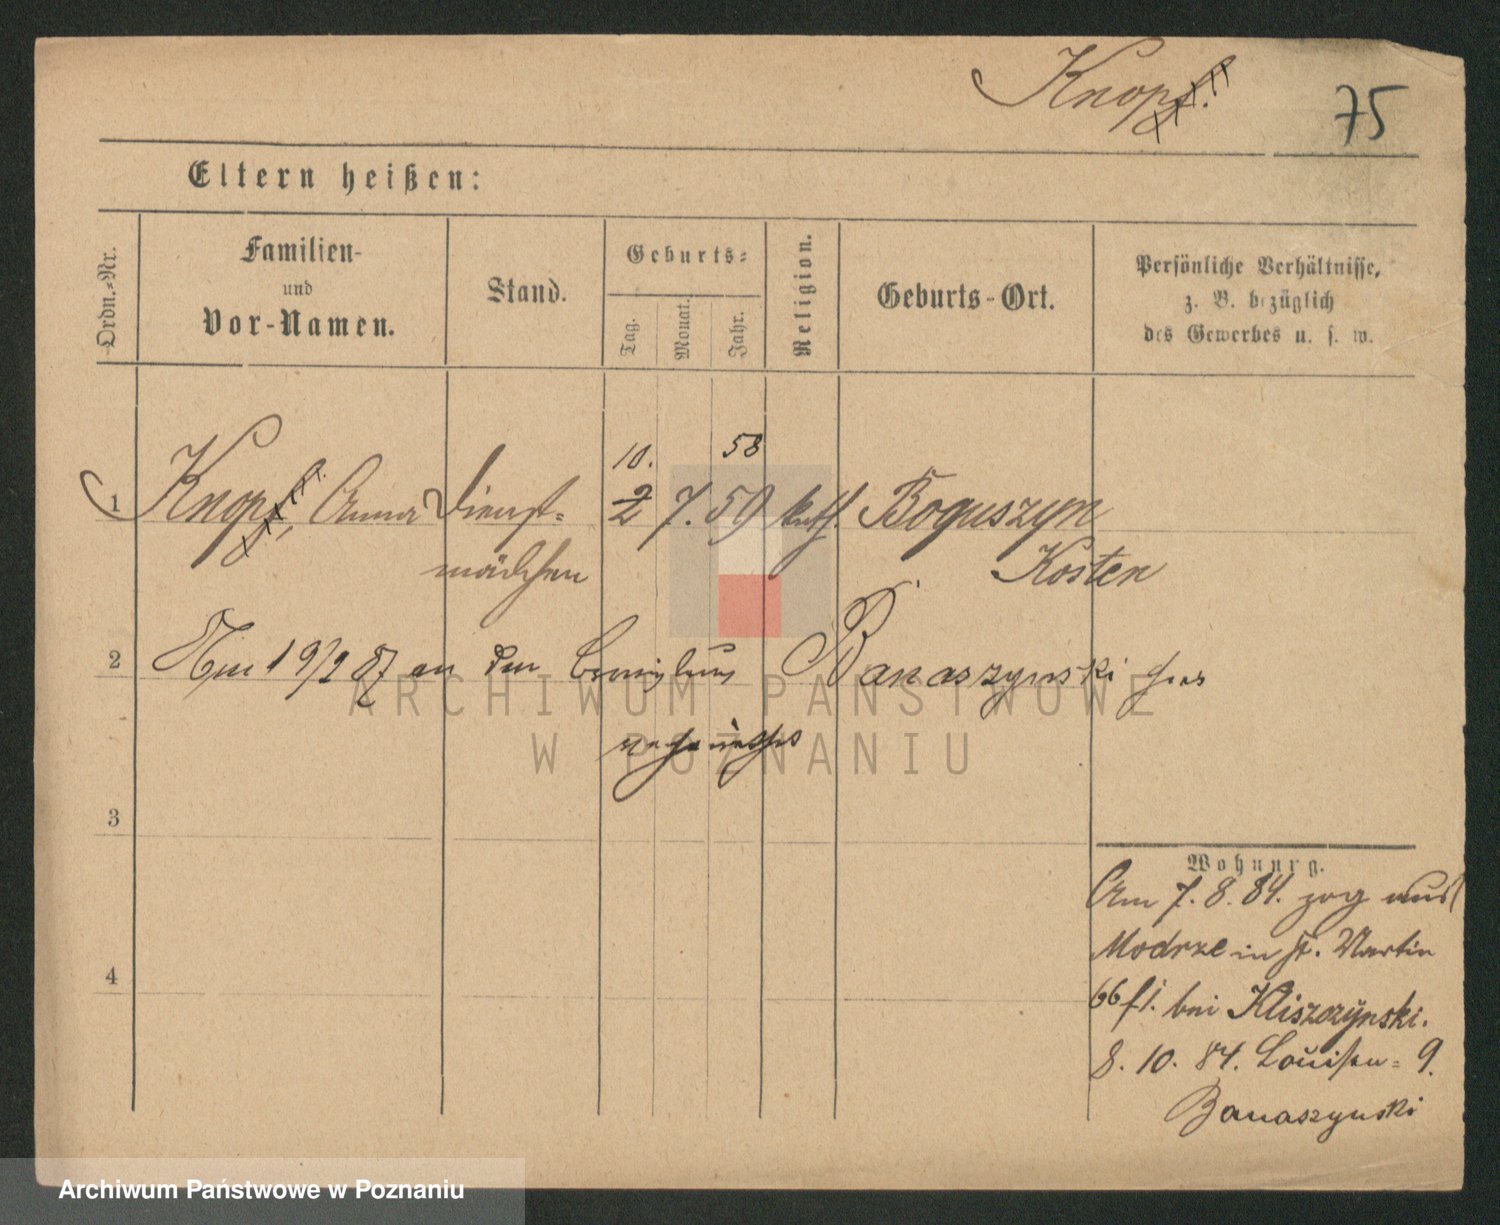 Knopf.
75
Eltern heißen:
Ordn.-Nr.
Familien-
und
Vor-Namen.
Stand.
Geburts-
Tag.
Monat.
Jahr.
Religion.
Geburts-Ort.
Persönliche Verhältnisse,
z. B. bezüglich
des Gewerbes u. s. w.
10. 58
1 Knopf, Anna Dienst- 2 7. 59 kath. Boguszyn
mädchen Kosten
2 Am 19/2 87 an den Banaszynski
3
Wohnung.
Am 7. 8. 84. zog aus
Modrze in St. Martin
66 bei Kliszczynski.
4
8. 10. 84. Louisen- 9.
Banaszynski
ARCHIWUM PAŃSTWOWE
W POZNANIU
Archiwum Państwowe w Poznaniu